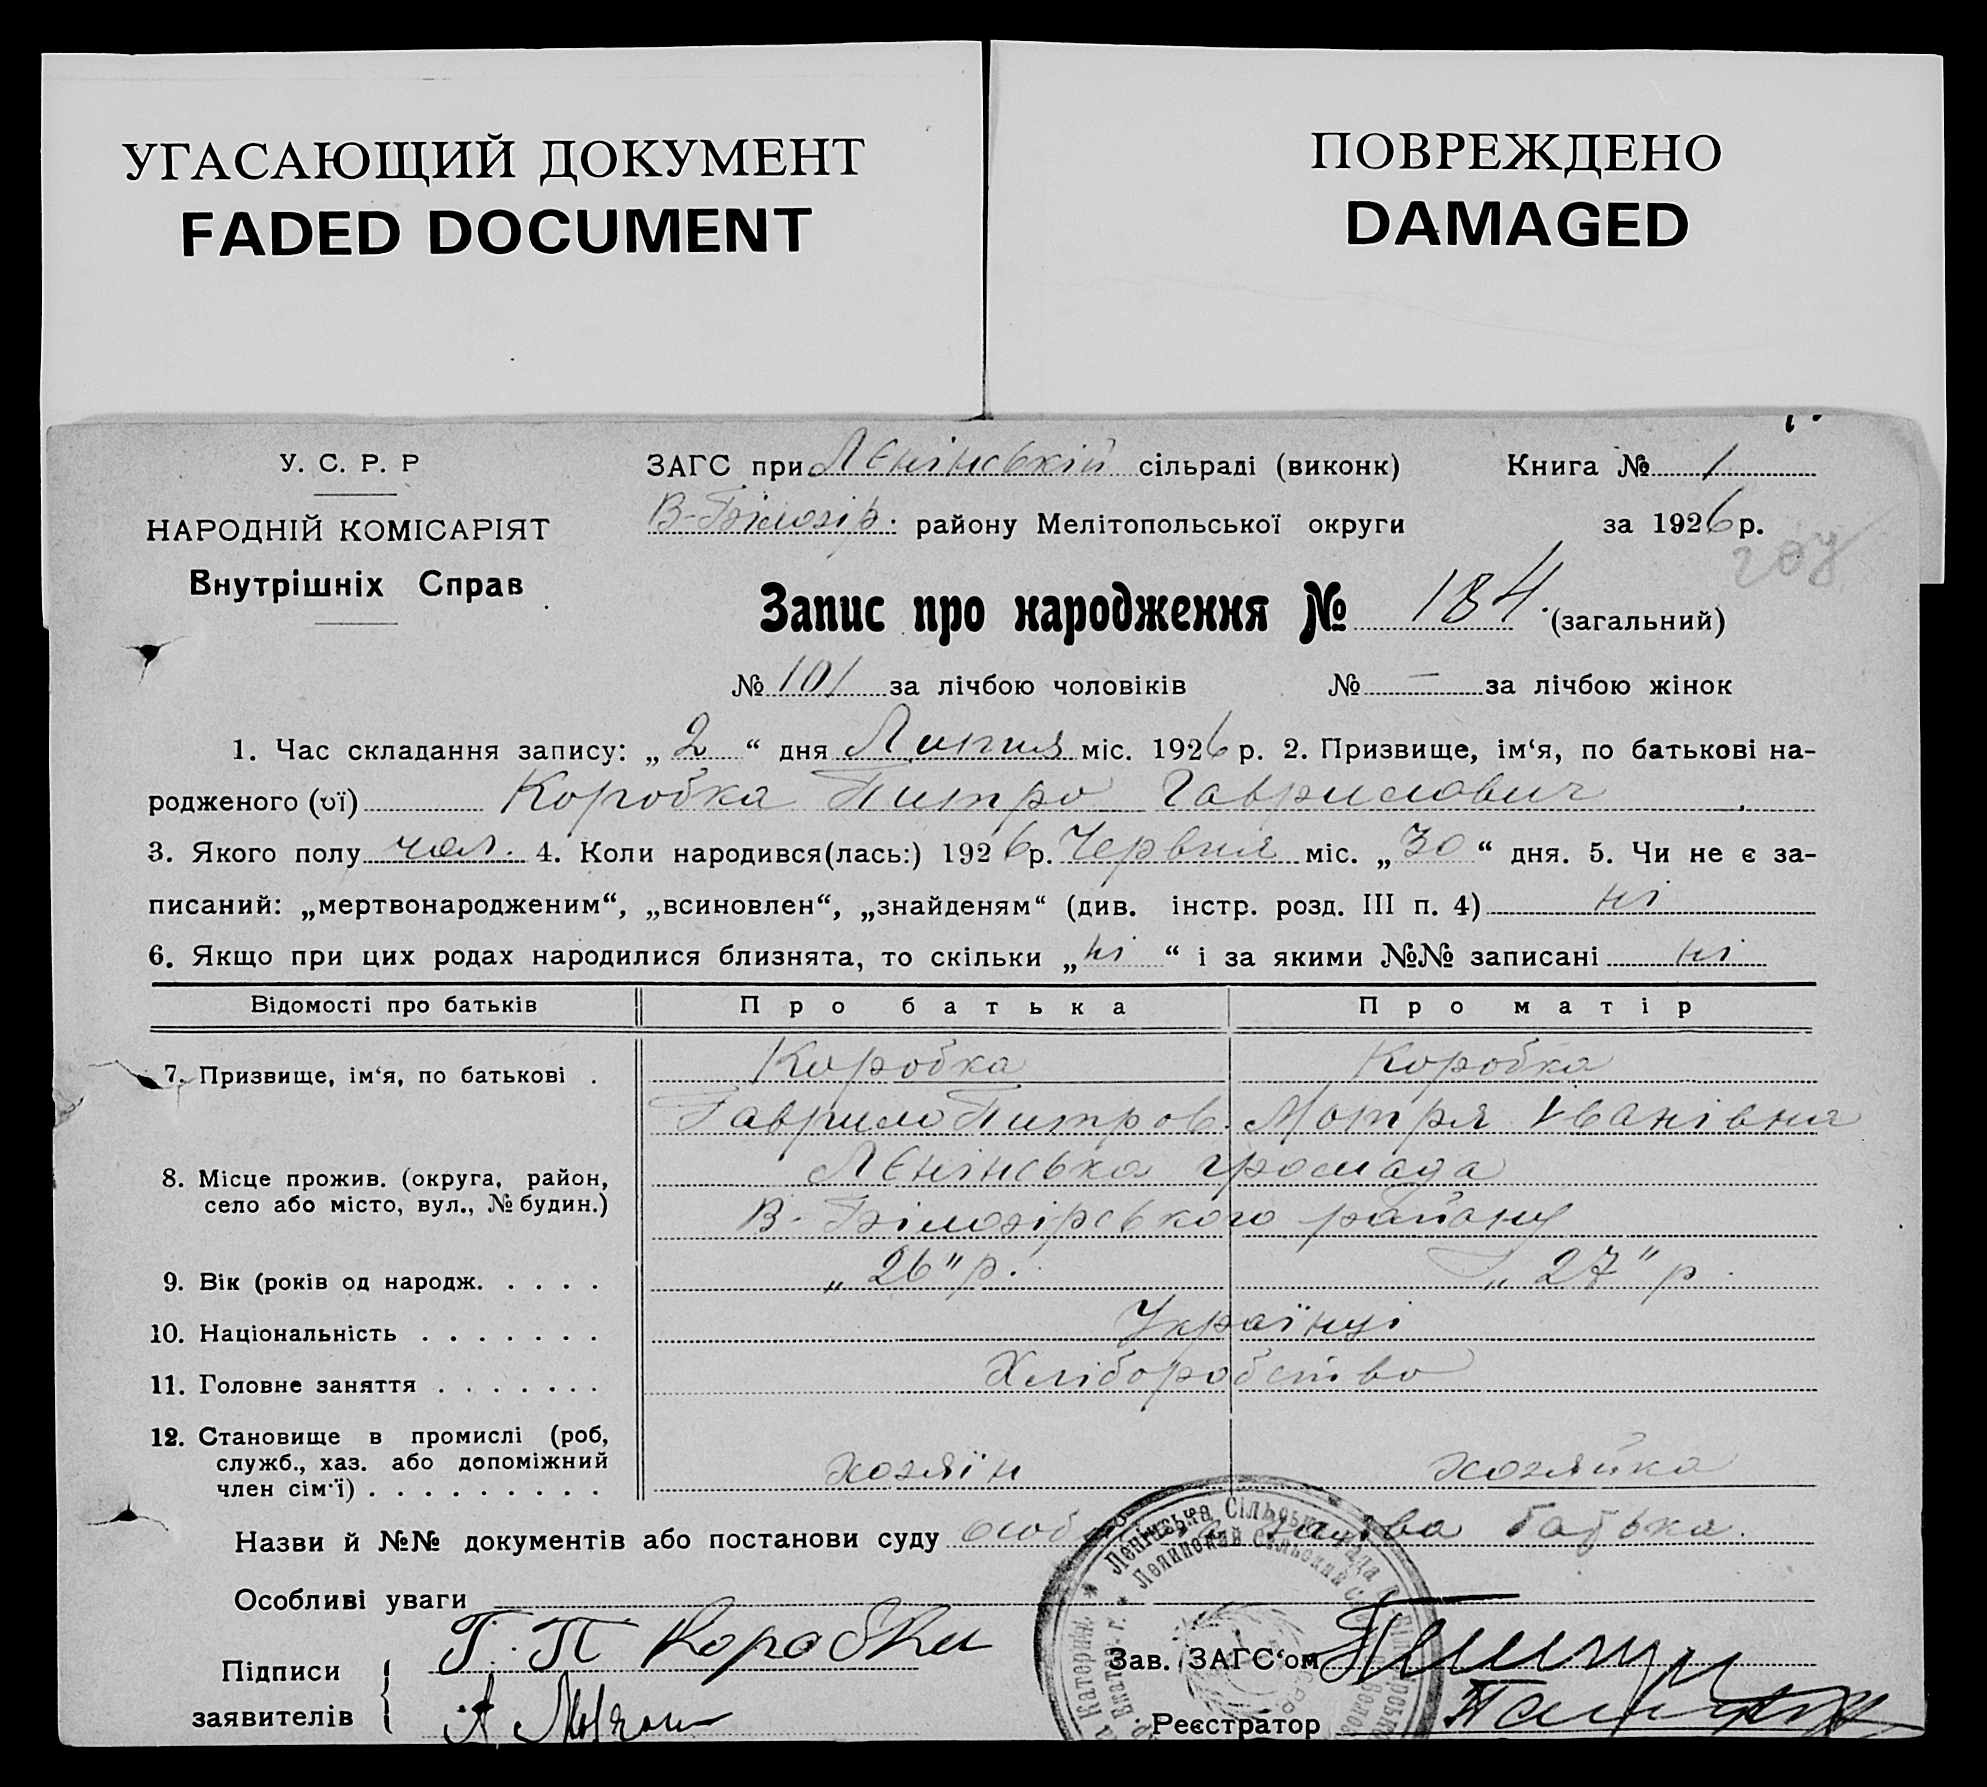 УГАСАЮЩИЙ ДОКУМЕНТ
FADED DOCUMENT
ПОВРЕЖДЕНО
DAMAGED
У. С. Р. Р
НАРОДНІЙ КОМІСАРІЯТ
Внутрішніх Справ
ЗАГС при Лєнінській сільраді (виконк) Книга № 1
В-Білозір. району Мелітопольської округи за 1926 р.
Запис про народження № 184. (загальний)
№ 101 за лічбою чоловіків № — за лічбою жінок
1. Час складання запису: „2“ дня Липня міс. 1926 р. 2. Призвище, ім‘я, по батькові на-
родженого (ої) Коробка Питро Гаврилович
3. Якого полу чол. 4. Коли народився(лась:) 1926 р. Червня міс. „30“ дня. 5. Чи не є за-
писаний: „мертвонародженим“, „всиновлен“, „знайденям“ (див. інстр. розд. III п. 4) ні
6. Якщо при цих родах народилися близнята, то скільки „ні“ і за якими №№ записані ні
Відомості про батьків Про батька Про матір
7. Призвище, ім‘я, по батькові . Коробка Коробка
Гаврило Питров. Мотря Іванівна
8. Місце прожив. (округа, район, село або місто, вул., № будин.) Лєнінська громада
В-Білозірського району
9. Вік (років од народж. . . . . „26“ р. „27“ р.
10. Національність . . . . . . . Українці
11. Головне заняття . . . . . . . Хліборобство
12. Становище в промислі (роб,
служб., хаз. або допоміжний
член сім‘ї) . . . . . . . . . хозяїн хозяйка
Назви й №№ документів або постанови суду заява батька.
Особливі уваги
Підписи
заявителів
Г. П Коробка
Зав. ЗАГС‘ом
Реєстратор
Ленінська Сільська Рада
Ленинский Сельский